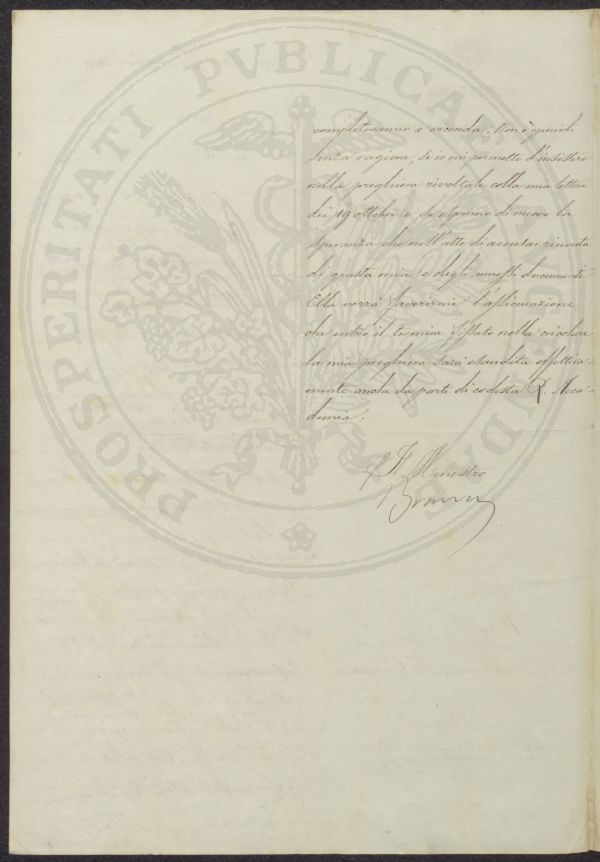 PROSPERITATI PVBLICAE
completeranno a vicenda. Non è quindi
senza ragione, se io mi permetto d'insistere
nella preghiera rivoltale colla mia lettera
dei 19 ottobre e, se esprimo di nuovo la
speranza che nell'atto di accusar ricevuta
di questa mia e degli annessi documenti
Ella vorrà favorirmi l'assicurazione
che entro il termine fissato nella circolare
la mia preghiera sarà esaudita effettiva-
mente anche da parte di codesta R. Acca-
demia.
Il Ministro